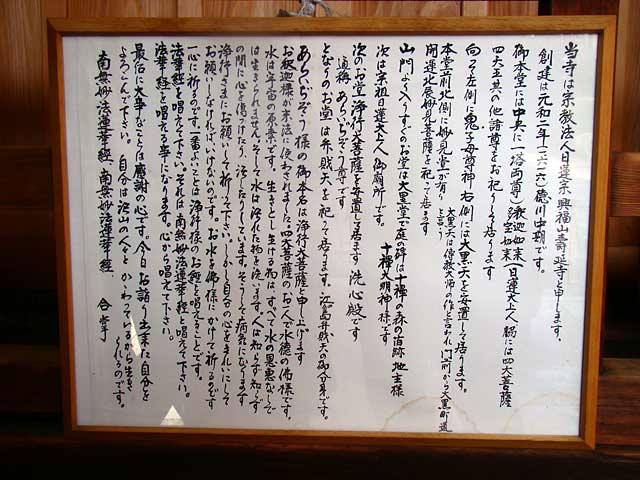 当寺は宗教法人日蓮宗興福山壽延寺と申します。
創建は元和二年(一六一六)徳川中期です。
御本堂には中央に一塔両尊(釈迦如来多宝如来)日蓮大上人脇には四大菩薩
四天王其の他諸尊をお祀りして居ります
向って左側に鬼子母尊神右側には大黒天を安置して居ります。
大黒天は傳教大師の作と言われ門前から大黒町通と言う
本堂の前北側に妙見堂が有り
開運北辰妙見菩薩を祀って居ます
山門より入りすぐのお堂は大黒堂で庭の碑は十禅の森の旧跡地主様
十禅大明神様です
次は宗祖日蓮大上人御廟所です。
次のお堂浄行大菩薩を安置して居ます洗心殿です
通称あらいぢぞう尊です
となりのお堂は弁財天を祀って居ります。江島弁財天の御分身です。
あらいぢぞう様の御本名は浄行大菩薩と申し上げます
お釈迦様が末法に使わされました四大菩薩のお一人で水徳の佛様です。
水は宇宙の原素です。生きとし生ける物は、すべて水の恩恵なしで
は生きられません。そして水は汚れた物を洗います。人は知らず知らず
の間に心を傷つけたり、汚したりしています。そうして病気になります
浄行さまにお願いして祈って下さい。しかし自分の心をきれいにして
お願いしなければいけないのです。お水を佛様にかけて祈るのです
一心に祈るのです一番よいことは浄行様のお経を唱えることです。
法華経を唱えて下さいそれは南無妙法蓮華経と唱えて下さい。
法華経を唱える事になります。心から唱えて下さい。
最后に大事なことは感謝の心です。今日お詣り出来た自分を
よろこんで下さい。自分は沢山の人々とかゝわっているから生き
られるのです。
南無妙法蓮華経　南無妙法蓮華経　合掌